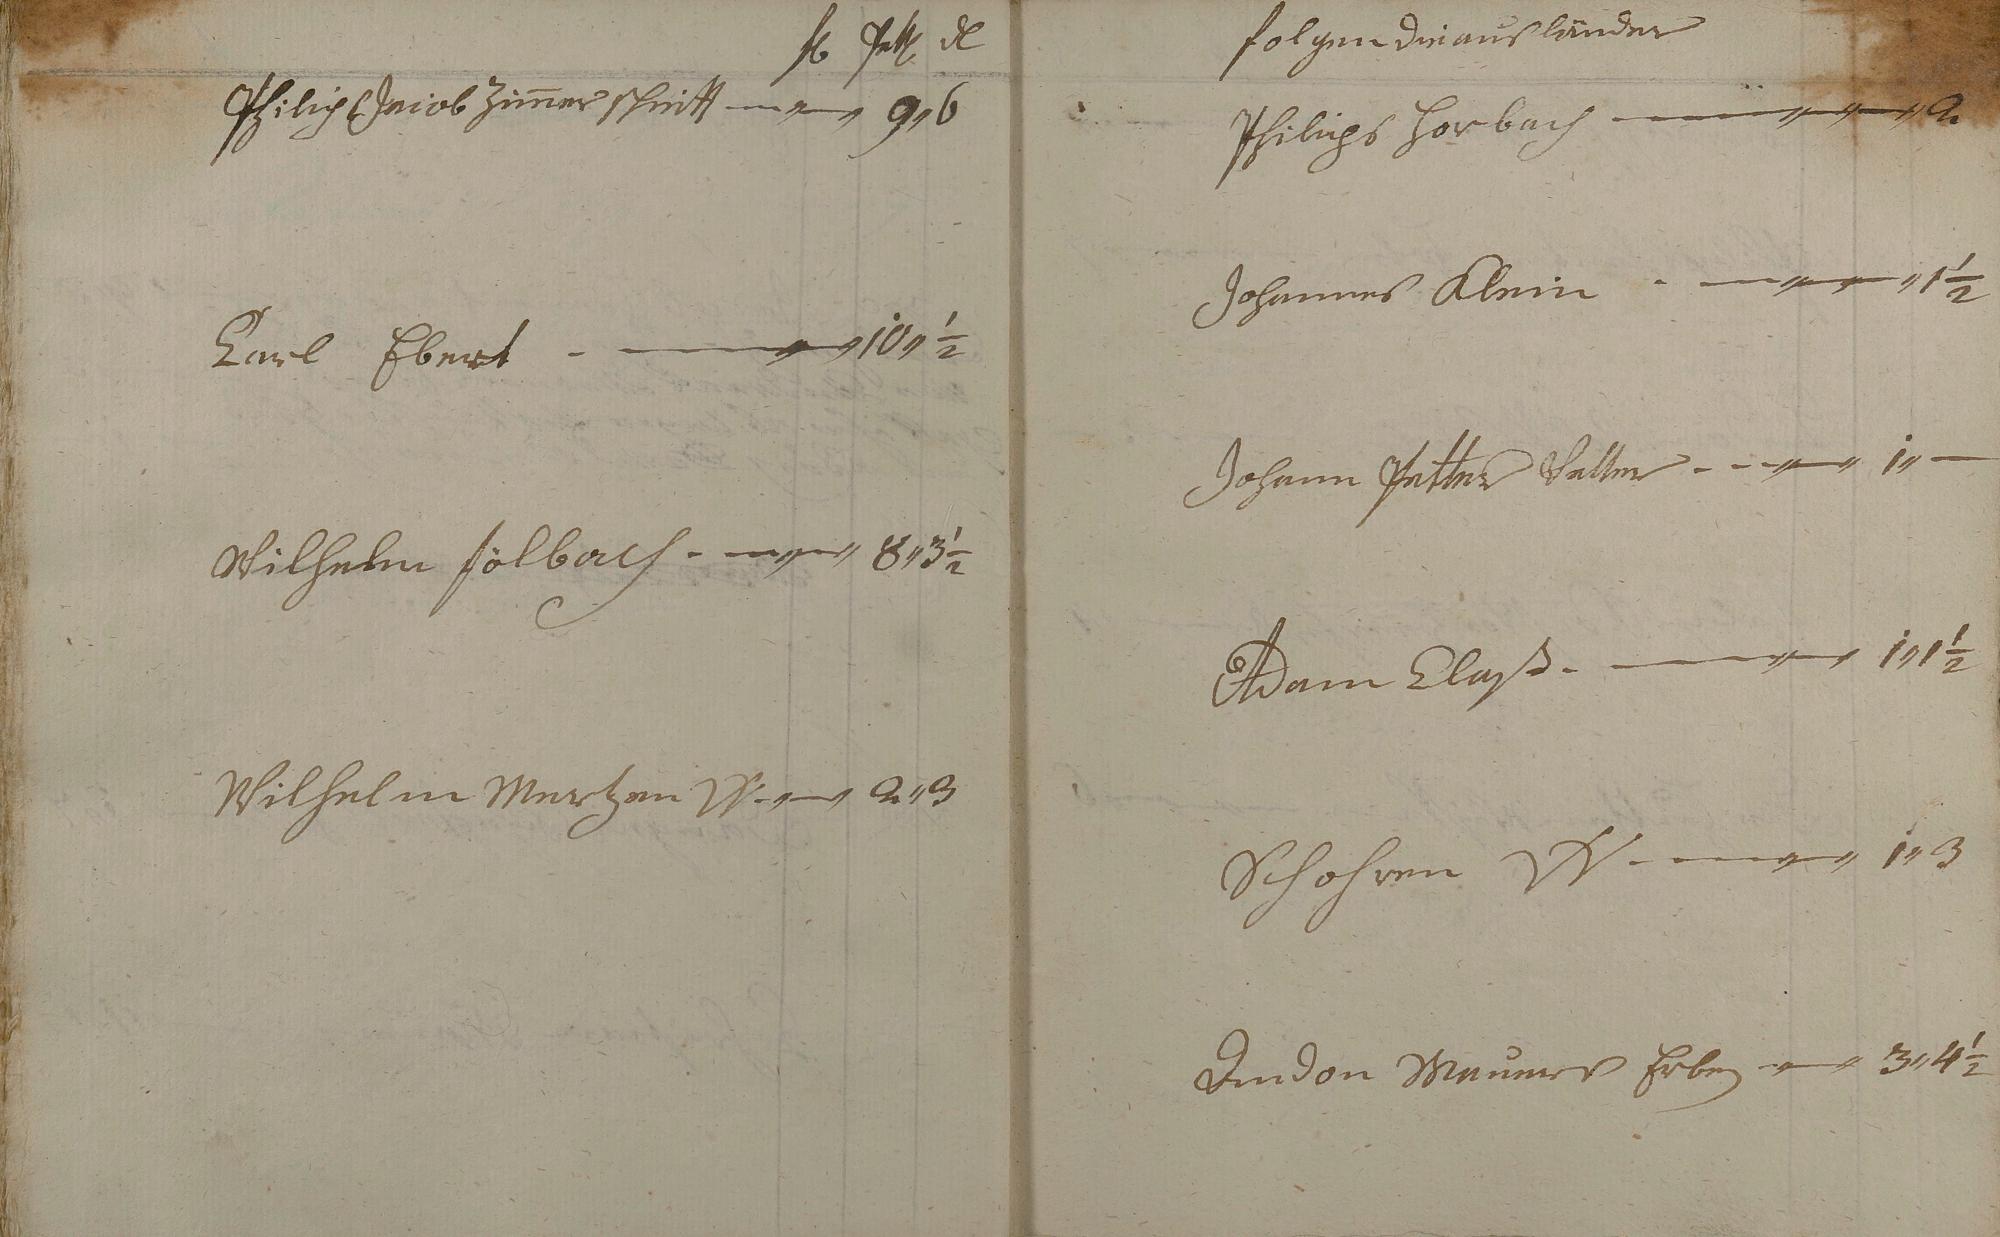 fl batz dl
Philips Jacob Zimmer schitt — „ — „ 9 „ 6
Carl Ebert - — „ — „ 10 „ ½
Wilhelm fölbach - — „ — „ 8 „ 3½
Wilhelm Mertzen W - „ — „ 2 „ 3
folgen die ausländer
Philips Horbach — „ — „ — „ 2
Johannes Klein - — „ — „ — „ 1½
Johann Petter - - — „ — „ 1 „ —
Adam Claß - — „ — „ 1 „ 1½
Schohren W - — „ — „ 1 „ 3
Andon Maurers Erben — „ — „ 3 „ 4½